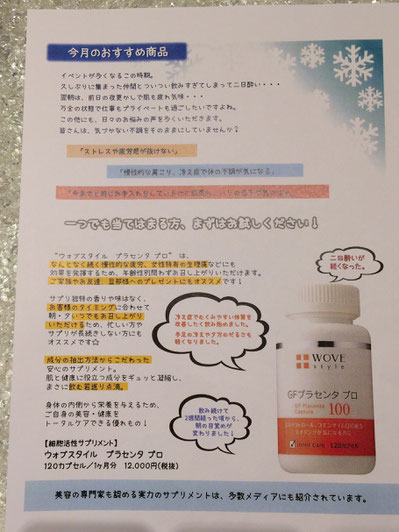 今月のおすすめ商品
イベントが多くなるこの時期。
久しぶりに集まった仲間とついつい飲みすぎてしまって二日酔い・・・
翌朝は、前日の夜更かしで肌も疲れ気味・・・
万全の状態で仕事もプライベートも過ごしたいですよね。
この他にも、日々のお悩みの声を多くいただきます。
皆さんは、気づかない不調をそのままにしていませんか？
「ストレスや疲労感が抜けない」
「慢性的な肩こり、冷え症で体の不調が気になる」
一つでも当てはまる方、まずはお試しください！
"ウォブスタイル プラセンタ プロ" は、
なんとなく続く慢性的な疲労、女性特有の生理痛などにも
効果を発揮するため、年齢性別問わずお召し上がりいただけます。
ご家族やお友達、旦那様へのプレゼントにもオススメです！
サプリ独特の香りや味はなく、
お客様のタイミングに合わせて
朝・夕いつでもお召し上がり
いただけるため、忙しい方や
サプリが長続きしない方にも
オススメです☆
成分の抽出方法からこだわった
安心のサプリメント。
肌と健康に役立つ成分をギュッと凝縮し、
まさに飲む若返り点滴。
身体の内側から栄養を与えるため、
ご自身の美容・健康を
トータルケアできる優れもの！
【細胞活性サプリメント】
ウォブスタイル プラセンタ プロ
120カプセル／1ヶ月分 12,000円(税抜)
冷え症でむくみやすい体質を
改善したく飲み始めました。
手足の冷えや夕方のだるさも
軽くなりました。
飲み続けて
2週間経った頃から、
朝の目覚めが
変わりました！
二日酔いが
軽くなった。
WOVE
style
GFプラセンタ プロ
GF Placenta
Capsule 100
美容の専門家も認める実力のサプリメントは、多数メディアにも紹介されています。